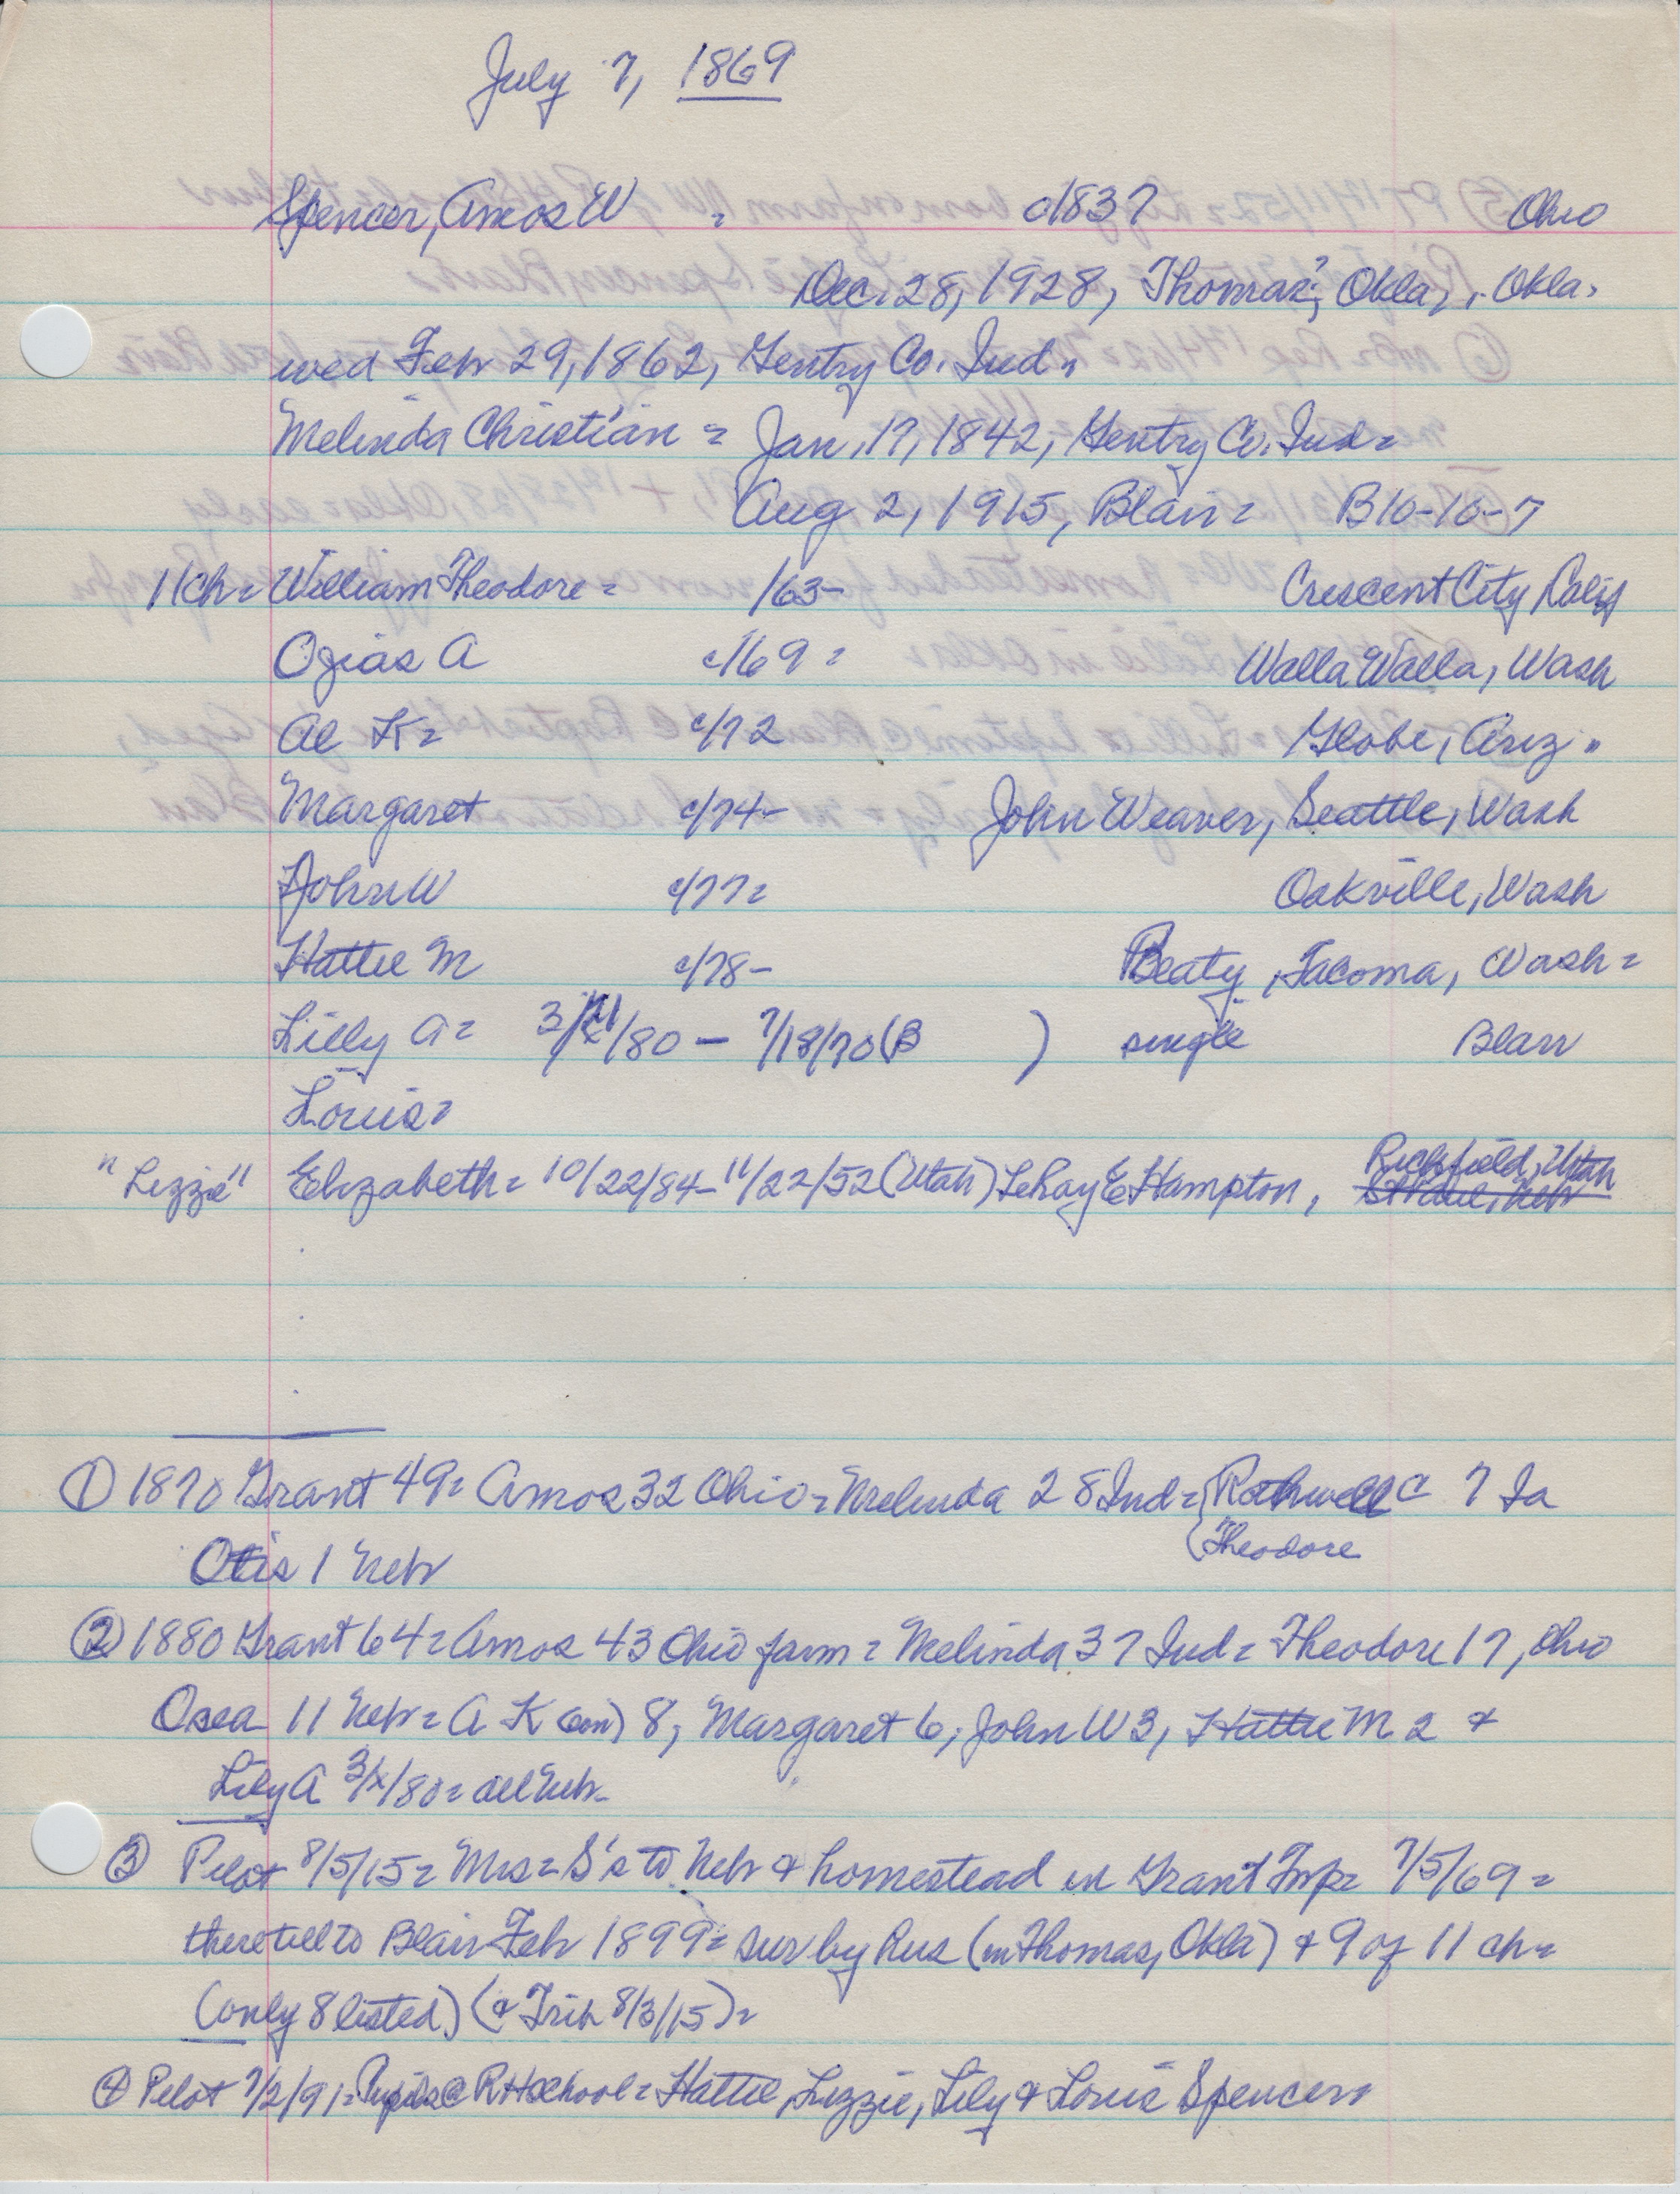 July 7, 1869
Spencer, Amos W = c1837 Ohio
Dec. 28, 1928, Thomas?, Okla, Okla.
wed Feb 29, 1862, Gentry Co. Ind =
Melinda Christian = Jan. 17, 1842, Gentry Co. Ind =
Aug 2, 1915, Blair = B10-10-7
11 ch = William Theodore = /63- Crescent City Calif
Ozias A c/69 = Walla Walla, Wash
Al K = c/72 Globe, Ariz =
Margaret c/74- John Weaver, Seattle, Wash
John W c/77 = Oakville, Wash
Hattie M c/78- Beaty, Tacoma, Wash =
Lilly A = 3/ /80 - 7/18/70 (B ) single Blair
Louis =
"Lizzie" Elizabeth = 10/22/84-11/22/52 (Utah) LeRoy E Hampton, Richfield, Utah
① 1870 Grant 49 = Amos 32 Ohio = Melinda 28 Ind = { Rothwell C 7 Ia
( Theodore
Otis 1 Neb
② 1880 Grant 64 = Amos 43 Ohio farm = Melinda 37 Ind = Theodore 17, Ohio
Osea 11 Neb = A K (son) 8, Margaret 6, John W 3, Hattie M 2 &
Lily A 3/x/80 = all Neb-
③ Pilot 8/5/15 = Mrs = S's to Neb & homestead in Grant Twp = 7/5/69 =
there till to Blair Feb 1899 = sur by hus (in Thomas, Okla) & 9 of 11 ch =
(only 8 listed) (& Trib 8/3/15) =
④ Pilot 7/2/91 = Pupils @ RH school = Hattie, Lizzie, Lily & Louis Spencer =